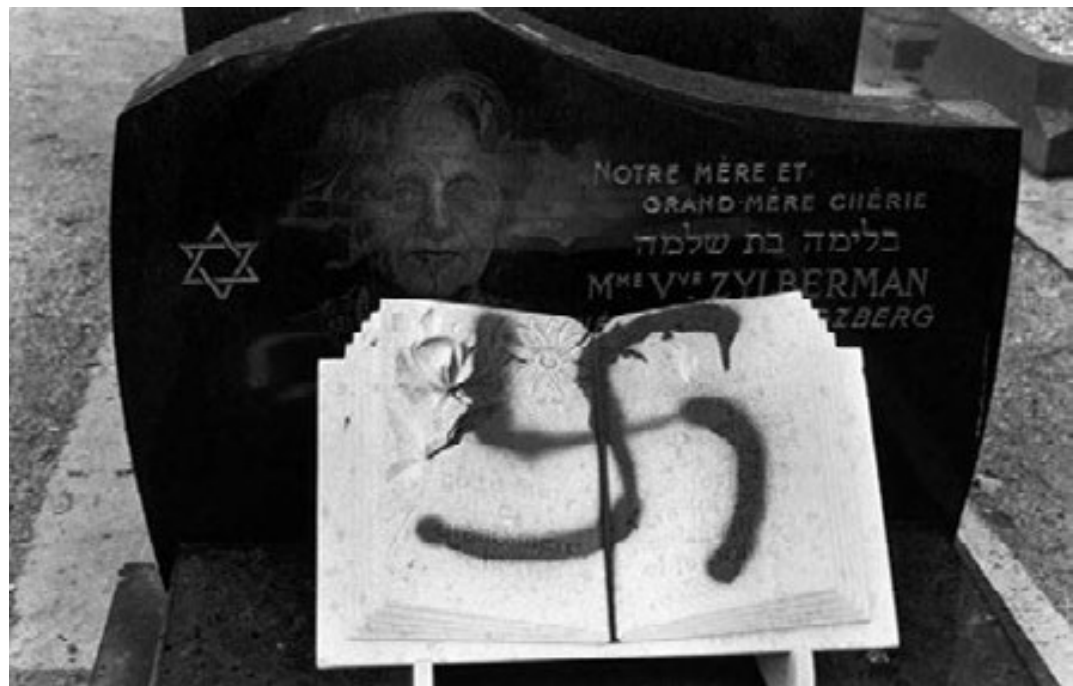 NOTRE MÈRE ET
GRAND-MÈRE CHÉRIE
בלימה בת שלמה
MME VVE ZYLBERMAN
ZBERG